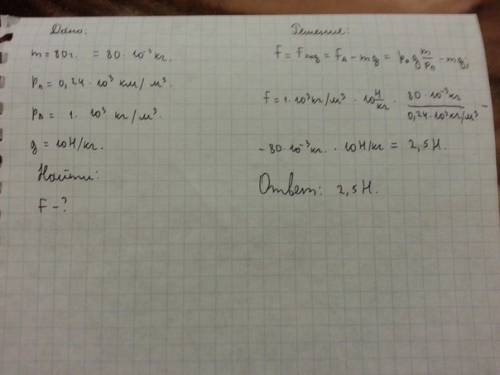 Дано:
m = 80 г. = 80 · 10⁻³ кг.
ρп = 0,24 · 10³ км/м³
ρв = 1 · 10³ кг/м³.
g = 10 Н/кг.
Найти:
F - ?
Решение:
F = Fпод = FA - mg = ρв g m/ρп - mg;
F = 1 · 10³ кг/м³ · 10 Н/кг · 80 · 10⁻³ кг / 0,24 · 10³ кг/м³ -
- 80 · 10⁻³ кг. · 10 Н/кг = 2,5 Н.
Ответ: 2,5 Н.